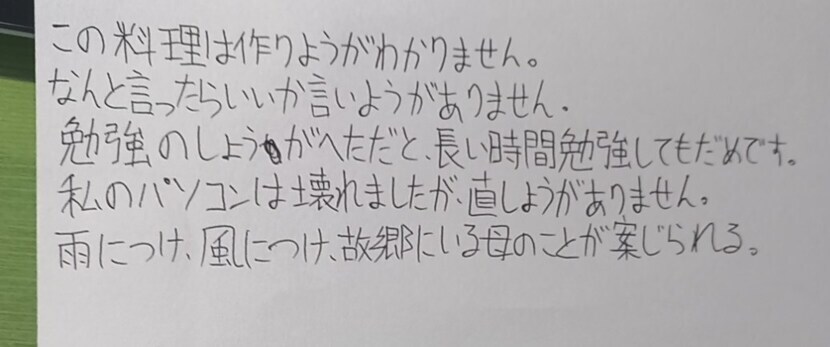 この料理は作りようがわかりません。
なんと言ったらいいか言いようがありません.
勉強のしようがへただと、長い時間勉強してもだめです。
私のパソコンは壊れましたが、直しようがありません。
雨につけ、風につけ、故郷にいる母のことが案じられる。